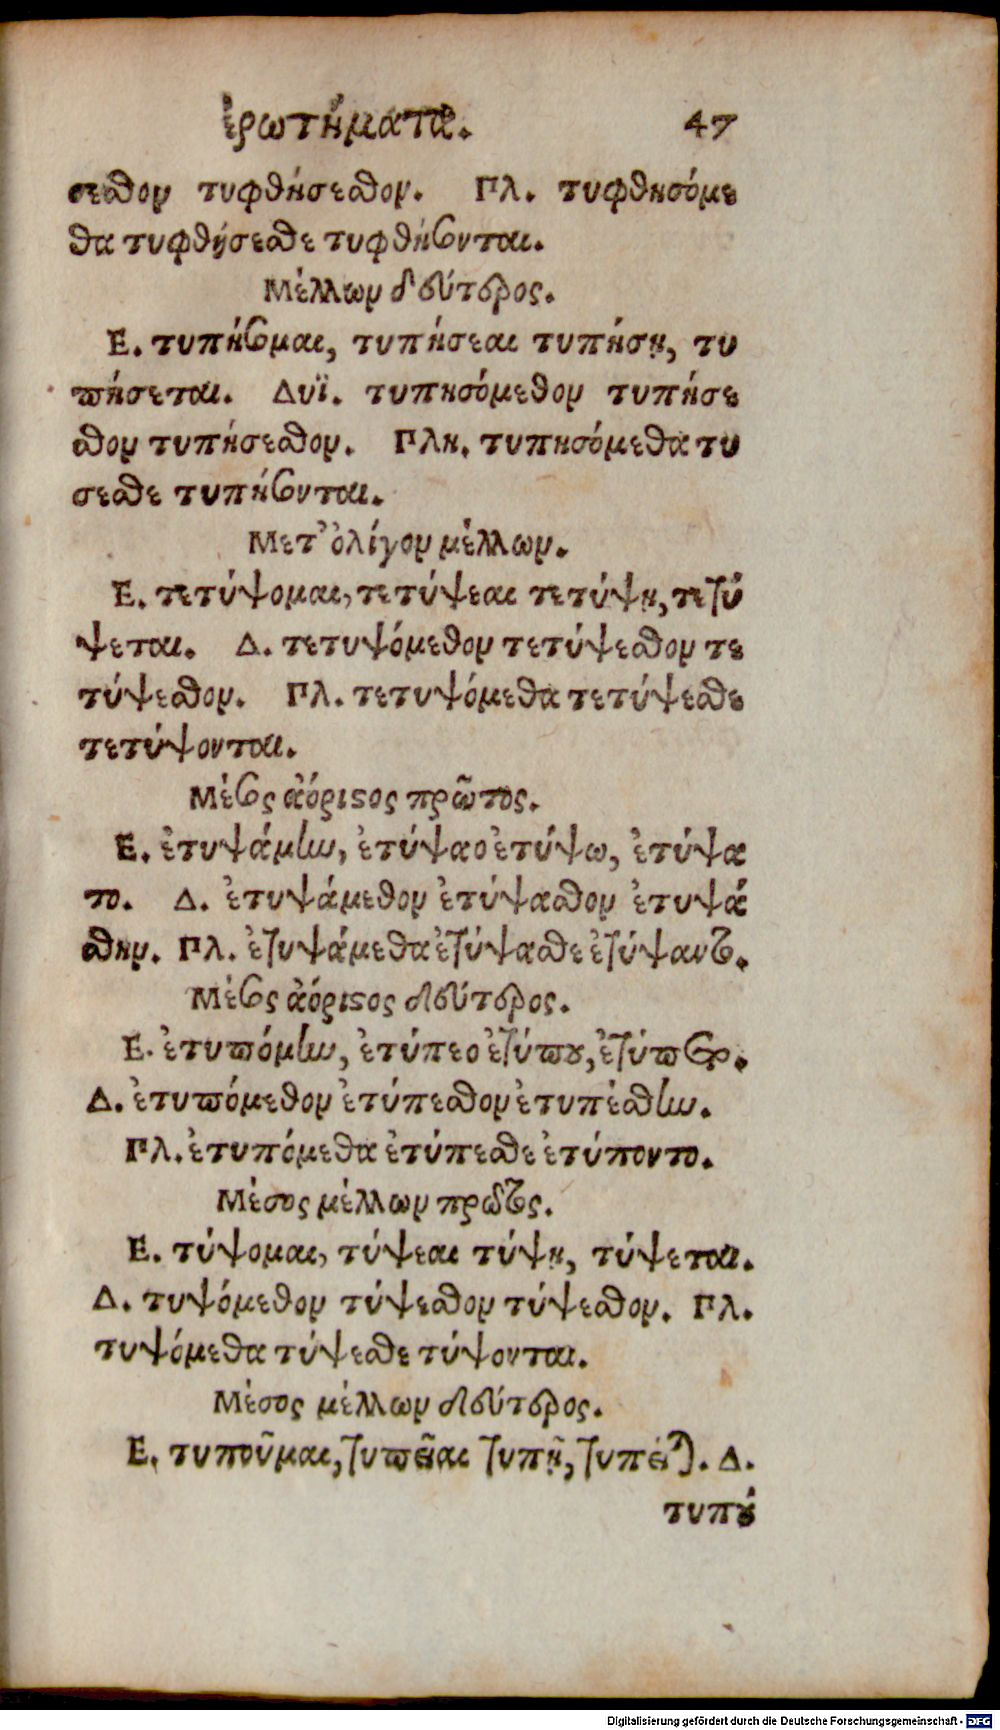 ἐρωτήματα. 47
σεσθον τυφθήσεσθον. Πλ. τυφθησόμε
θα τυφθήσεσθε τυφθήσονται.
Μέλλων δεύτερος.
Ε. τυπήσομαι, τυπήσεαι τυπήσῃ, τυ
πήσεται. Δυϊ. τυπησόμεθον τυπήσε
σθον τυπήσεσθον. Πλη. τυπησόμεθα τυ
σεσθε τυπήσονται.
Μετ' ὀλίγον μέλλων.
Ε. τετύψομαι, τετύψεαι τετύψῃ, τετύ
ψεται. Δ. τετυψόμεθον τετύψεσθον τε
τύψεσθον. Πλ. τετυψόμεθα τετύψεσθε
τετύψονται.
Μέσος ἀόριστος πρῶτος.
Ε. ἐτυψάμην, ἐτύψαο ἐτύψω, ἐτύψα
το. Δ. ἐτυψάμεθον ἐτύψασθον ἐτυψά
σθην. Πλ. ἐτυψάμεθα ἐτύψασθε ἐτύψαντο.
Μέσος ἀόριστος δεύτερος.
Ε. ἐτυπόμην, ἐτύπεο ἐτύπου, ἐτύπετο.
Δ. ἐτυπόμεθον ἐτύπεσθον ἐτυπέσθην.
Πλ. ἐτυπόμεθα ἐτύπεσθε ἐτύποντο.
Μέσος μέλλων πρῶτος.
Ε. τύψομαι, τύψεαι τύψῃ, τύψεται.
Δ. τυψόμεθον τύψεσθον τύψεσθον. Πλ.
τυψόμεθα τύψεσθε τύψονται.
Μέσος μέλλων δεύτερος.
Ε. τυποῦμαι, τυπεῖσαι τυπῇ, τυπεῖται. Δ.
τυπού
Digitalisierung gefördert durch die Deutsche Forschungsgemeinschaft - DFG